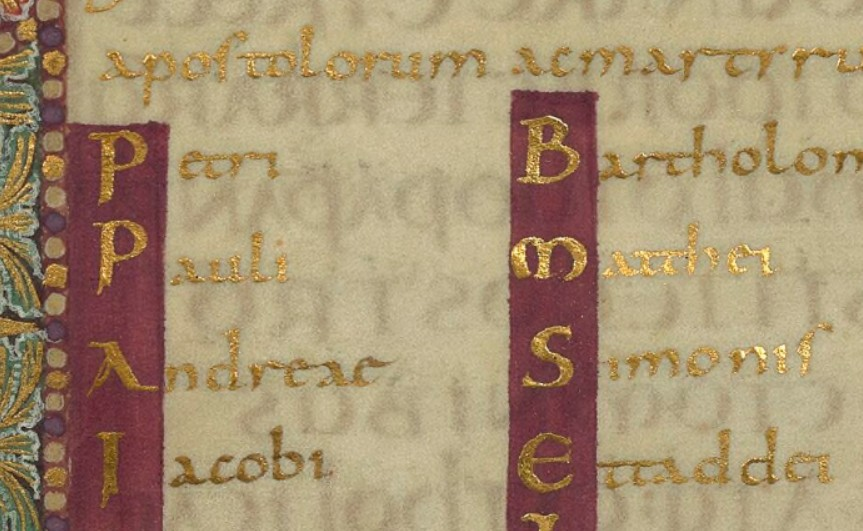 apostolorum acmartyru
Petri
Pauli
Andreae
Iacobi
Bartholom
Matthei
Simonis
Ettaddei